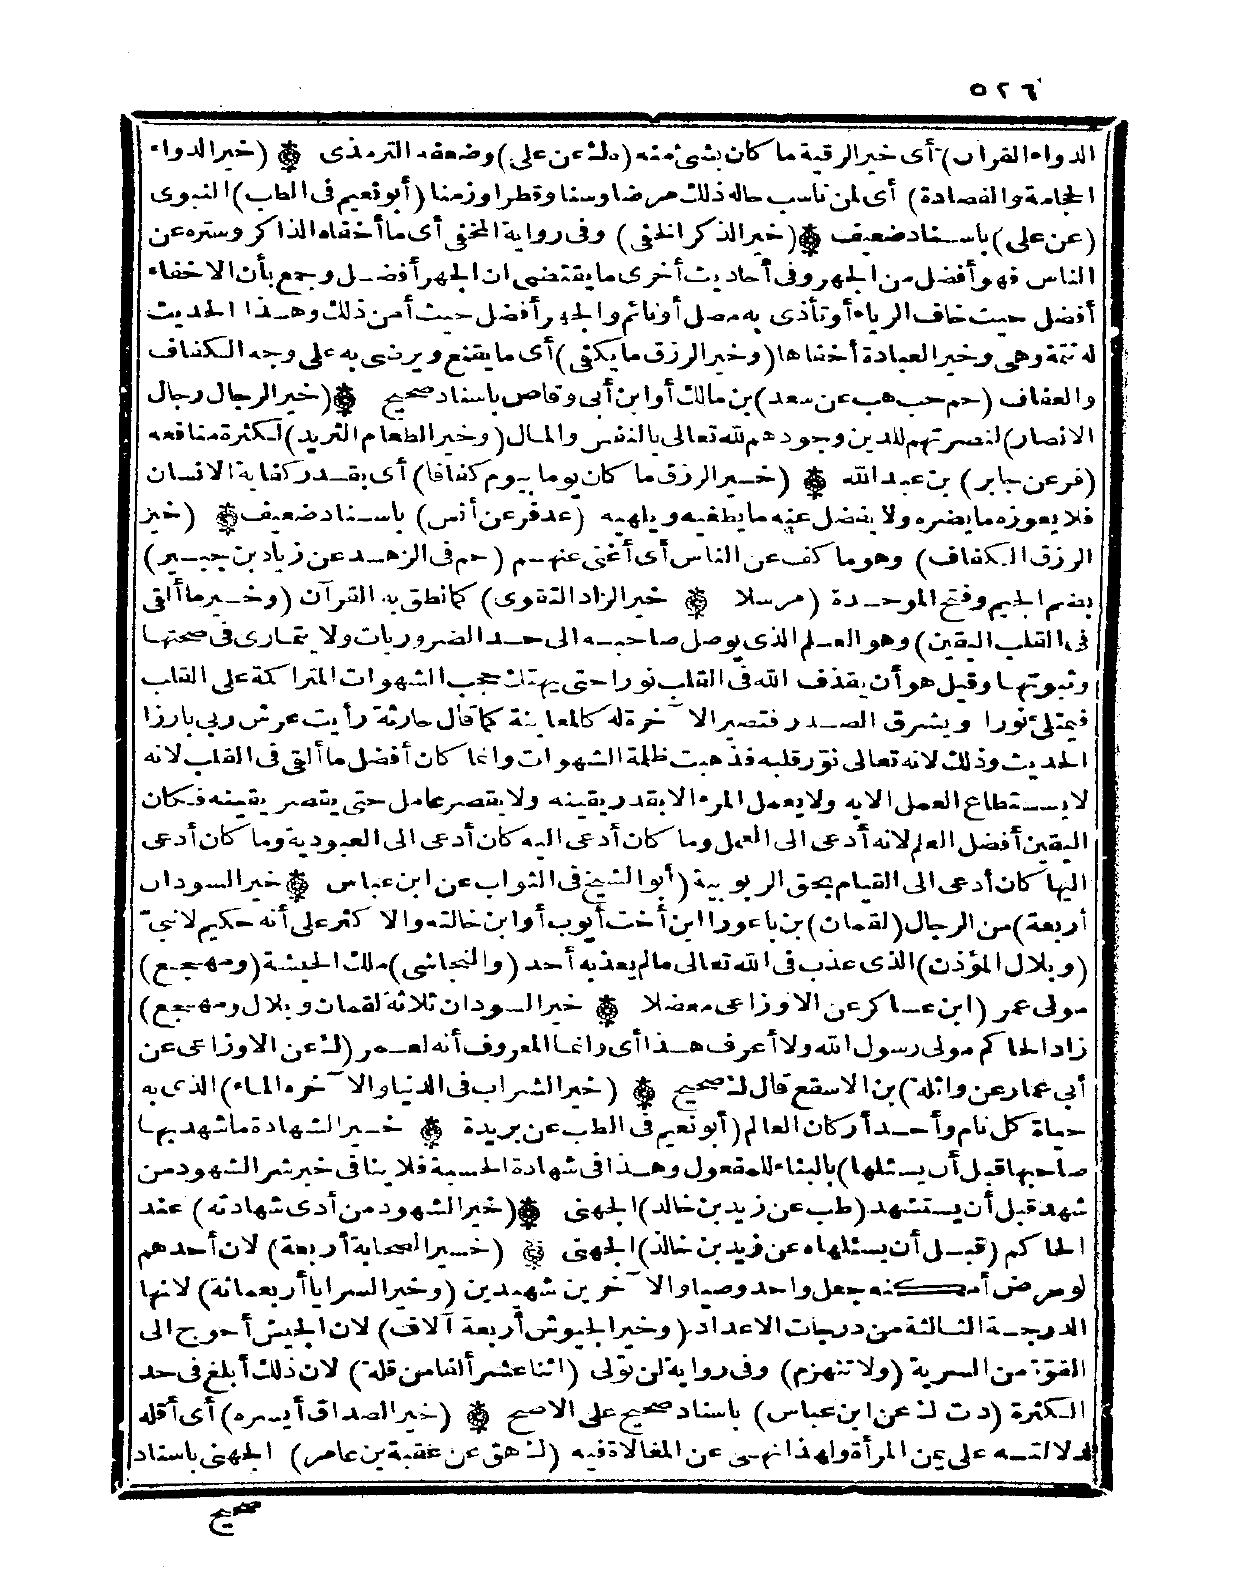 ٥٢٦
الدواء القرآن) أى خير الرقية ما كان بشئ منه (ه ك عن على) وضعفه الترمذى ۞ (خير الدواء
الحجامة والفصادة) أى لمن ناسب حاله ذلك مرضا وسنا وقطرا وزمنا (أبو نعيم فى الطب) النبوى
(عن على) باسناد ضعيف ۞ (خير الذكر الخفى) وفى رواية المخفى أى ما أخفاه الذاكر وستره عن
الناس فهو أفضل من الجهر وفى أحاديث أخرى ما يقتضى ان الجهر أفضل وجمع بأن الاخفاء
أفضل حيث خاف الرياء أو تأذى به مصل أو نائم والجهر أفضل حيث أمن ذلك وهذا الحديث
له تتمة وهى وخير العبادة أخفاها (وخير الرزق ما يكفى) أى ما يقنع ويرضى به على وجه الكفاف
والعفاف (حم حب هب عن سعد) بن مالك أو ابن أبى وقاص باسناد صحيح ۞ (خير الرجال رجال
الانصار) لنصرتهم للدين وجودهم لله تعالى بالنفس والمال (وخير الطعام الثريد) لكثرة منافعه
(فر عن جابر) بن عبد الله ۞ (خير الرزق ما كان يوما بيوم كفافا) أى بقدر كفاية الانسان
فلا يعوزه ما يضره ولا يفضل عنه ما يطغيه ويلهيه (عد فر عن أنس) باسناد ضعيف ۞ (خير
الرزق الكفاف) وهو ما كف عن الناس أى أغنى عنهم (حم فى الزهد عن زياد بن جبير)
بضم الجيم وفتح الموحدة (مرسلا ۞ خير الزاد التقوى) كما نطق به القرآن (وخير ما ألقى
فى القلب اليقين) وهو العلم الذى يوصل صاحبه الى حد الضروريات ولا يتمارى فى صحتها
وثبوتها وقيل هو أن يقذف الله فى القلب نورا حتى يهتك حجب الشهوات المتراكمة على القلب
فيمتلئ نورا ويشرق الصدر فتصير الآخرة له كالمعاينة كما قال حارثة رأيت عرش ربى بارزا
الحديث وذلك لانه تعالى نور قلبه فذهبت ظلمة الشهوات وانما كان أفضل ما ألقى فى القلب لانه
لا يستطاع العمل الا به ولا يعمل المرء الا بقدر يقينه ولا يقصر عامل حتى يقصر يقينه فكان
اليقين أفضل العلم لانه أدعى الى العمل وما كان أدعى اليه كان أدعى الى العبودية وما كان أدعى
اليها كان أدعى الى القيام بحق الربوبية (أبو الشيخ فى الثواب عن ابن عباس ۞ خير السودان
أربعة) من الرجال (لقمان) بن باعورا ابن أخت أيوب أو ابن خالته والاكثر على أنه حكيم لا نبى
(وبلال المؤذن) الذى عذب فى الله تعالى ما لم يعذبه أحد (والنجاشى) ملك الحبشة (ومهجع)
مولى عمر (ابن عساكر عن الاوزاعى معضلا ۞ خير السودان ثلاثة لقمان وبلال ومهجع)
زاد الحاكم مولى رسول الله ولا أعرف هذا أى وانما المعروف أنه لعمر (ك عن الاوزاعى عن
أبى عمار عن واثلة) بن الاسقع قال ك صحيح ۞ (خير الشراب فى الدنيا والآخرة الماء) الذى به
حياة كل نام وأحد أركان العالم (أبو نعيم فى الطب عن بريدة ۞ خير الشهادة ما شهد بها
صاحبها قبل أن يسئلها) بالبناء للمفعول وهذا فى شهادة الحسبة فلا ينافى خبر شر الشهود من
شهد قبل أن يستشهد (طب عن زيد بن خالد) الجهنى ۞ (خير الشهود من أدى شهادته) عند
الحاكم (قبل أن يسئلها ه عن زيد بن خالد) الجهنى ۞ (خير الصحابة أربعة) لان أحدهم
لو مرض أمكنه جعل واحد وصيا والآخرين شهيدين (وخير السرايا أربعمائة) لانها
الدرجة الثالثة من درجات الاعداد (وخير الجيوش أربعة آلاف) لان الجيش أحوج الى
القوة من السرية (ولا تنهزم) وفى رواية لن تؤتى (اثنا عشر ألفا من قلة) لان ذلك أبلغ فى حد
الكثرة (د ت ك عن ابن عباس) باسناد صحيح على الاصح ۞ (خير الصداق أيسره) أى أقله
لدلالته على يمن المرأة ولهذا نهى عن المغالاة فيه (ك هق عن عقبة بن عامر) الجهنى باسناد
صحيح